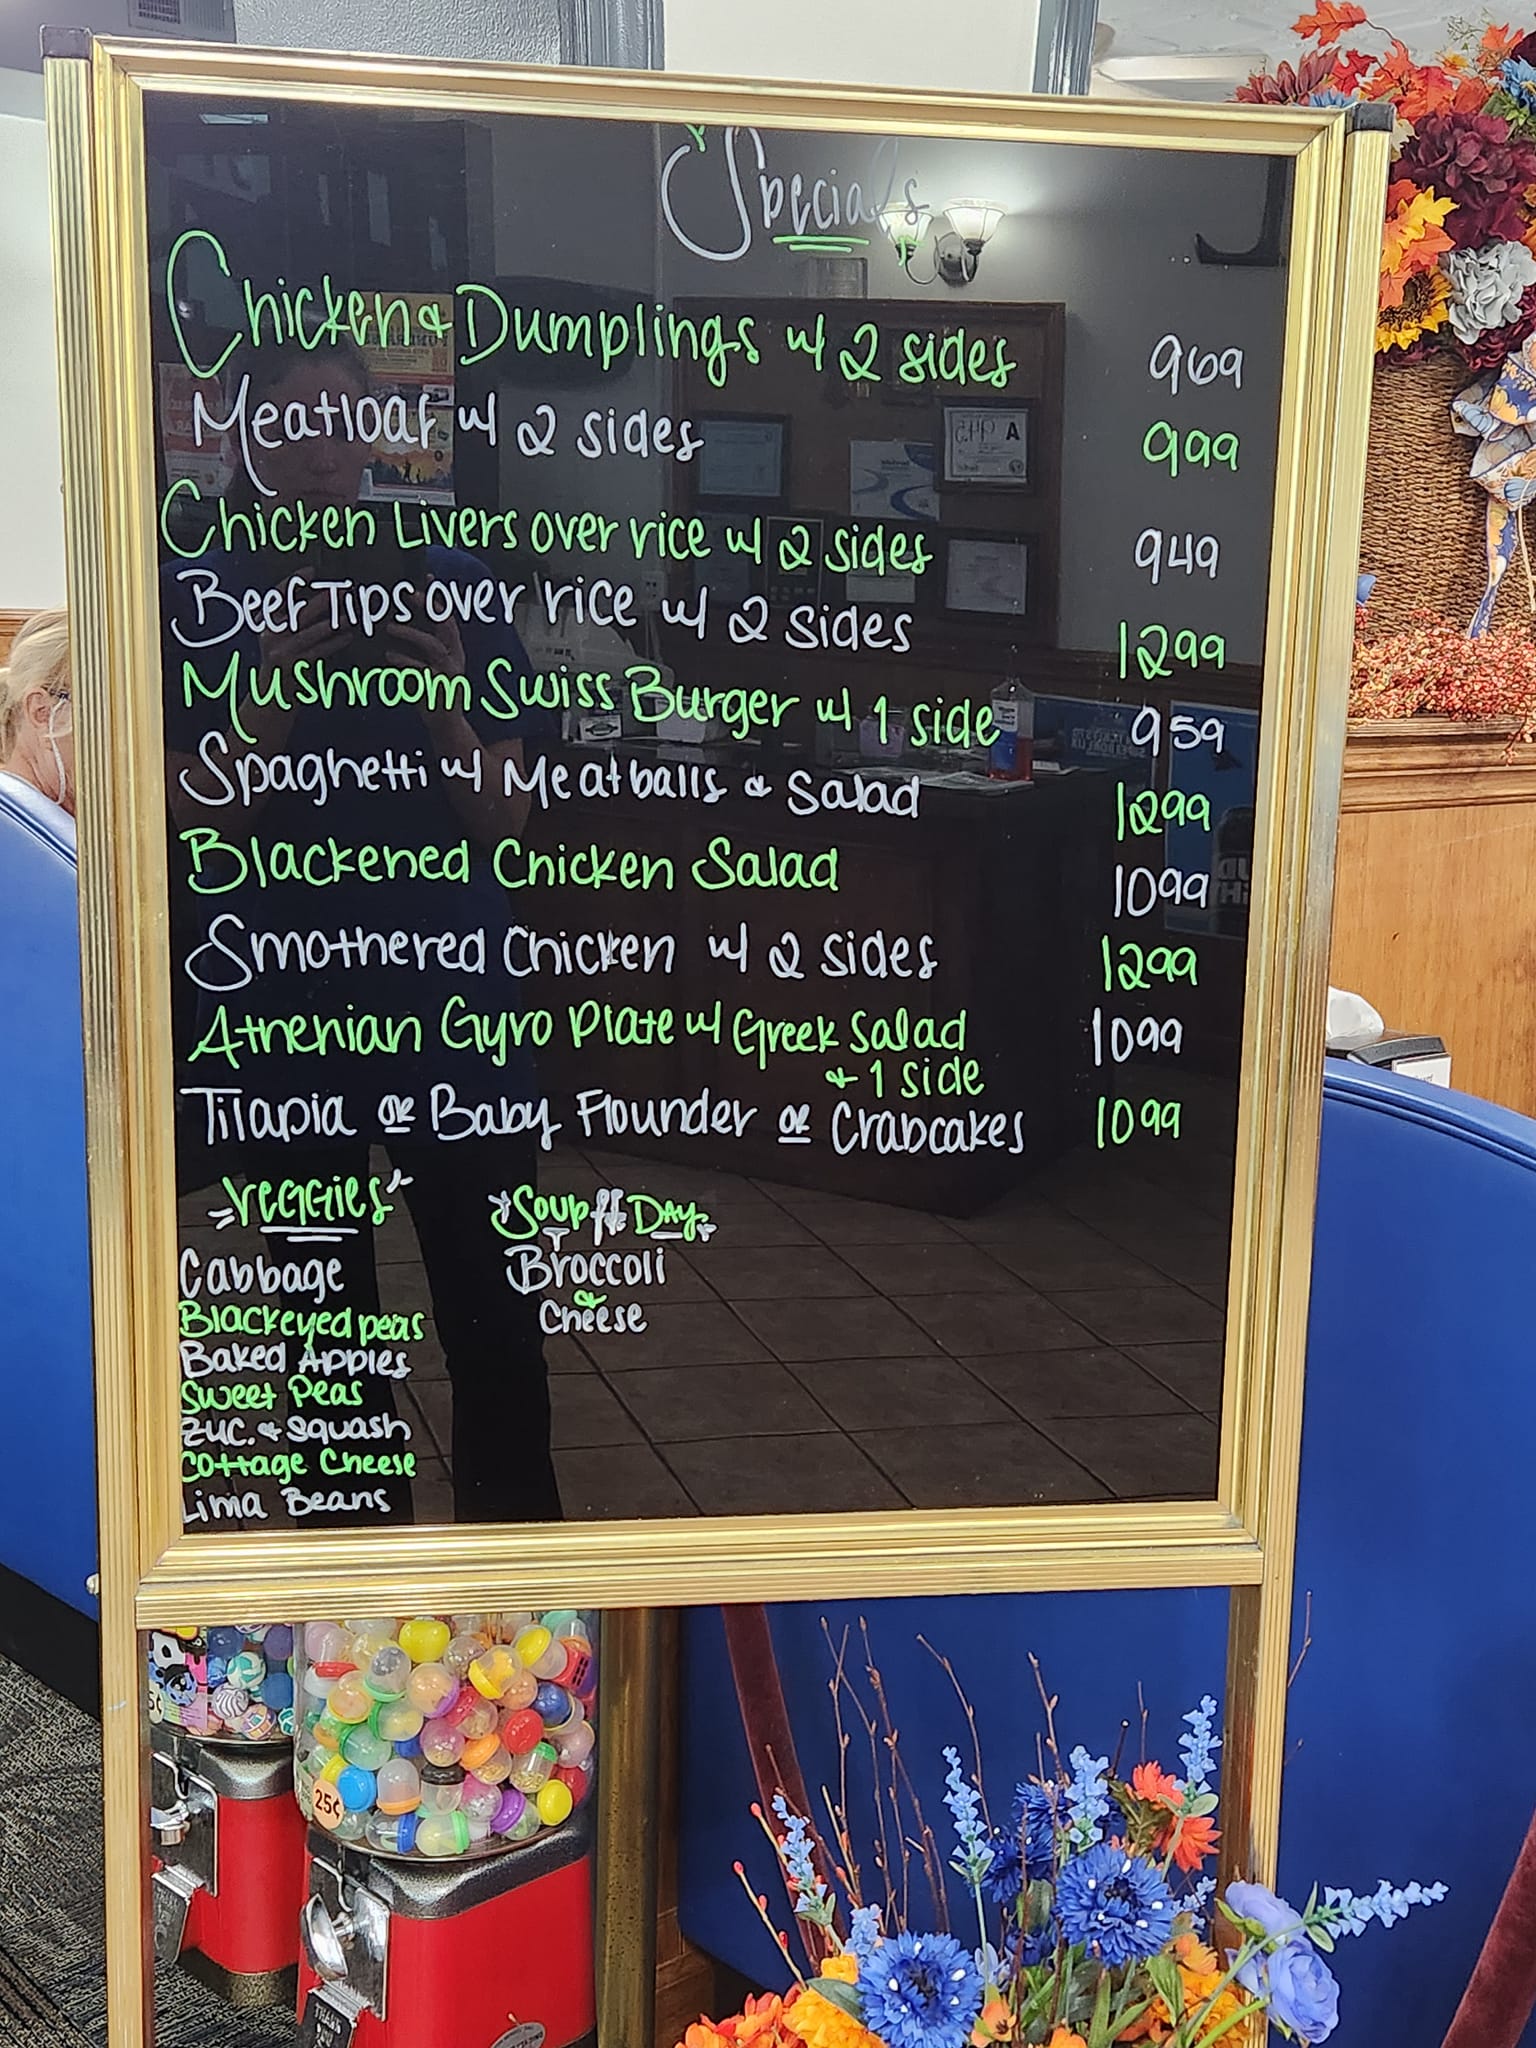 Specials
Chicken & Dumplings w/ 2 sides 969
Meatloaf w/ 2 sides 999
Chicken Livers over rice w/ 2 sides 949
Beef Tips over rice w/ 2 sides 1299
Mushroom Swiss Burger w/ 1 side 959
Spaghetti w/ Meatballs & Salad 1299
Blackened Chicken Salad 1099
Smothered Chicken w/ 2 sides 1299
Athenian Gyro Plate w/ Greek Salad 1099
& 1 side
Tilapia or Baby Flounder or Crabcakes 1099
Veggies
Cabbage
Blackeyed peas
Baked Apples
Sweet Peas
Zuc. & Squash
Cottage Cheese
Lima Beans
Soup of Day
Broccoli
&
Cheese
5¢
25¢